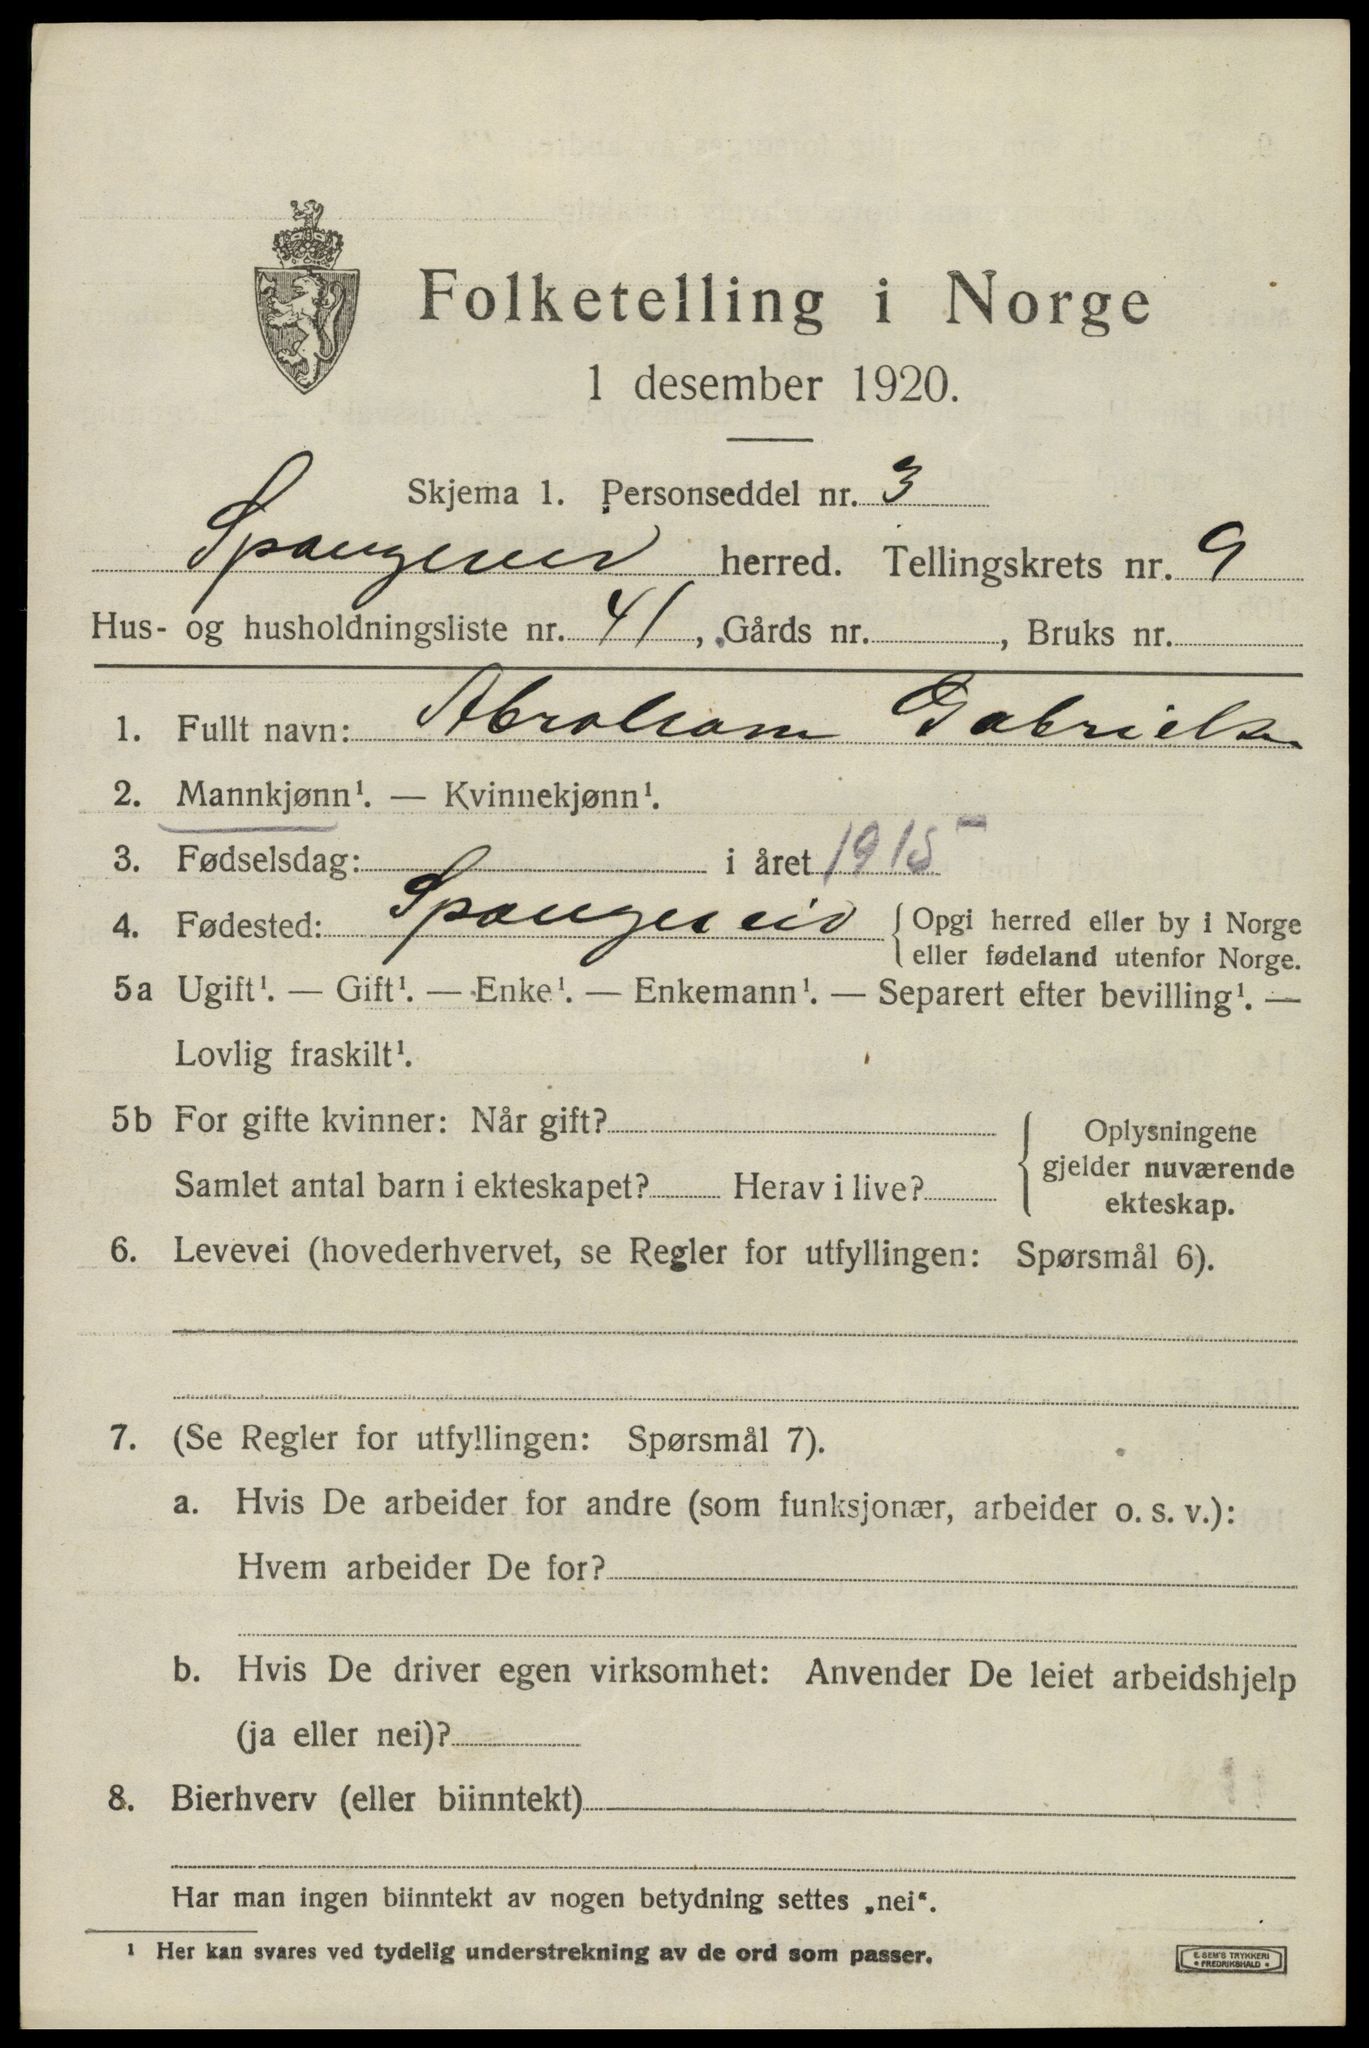 Folketelling i Norge
1 desember 1920.
Skjema 1. Personseddel nr. 3
Spangereid herred. Tellingskrets nr. 9
Hus- og husholdningsliste nr. 41, Gårds nr. , Bruks nr.
1. Fullt navn: Abraham Gabrielsen
2. Mannkjønn¹. — Kvinnekjønn¹.
3. Fødselsdag: i året 1915
4. Fødested: Spangereid { Opgi herred eller by i Norge
eller fødeland utenfor Norge.
5a Ugift¹. — Gift¹. — Enke¹. — Enkemann¹. — Separert efter bevilling¹. —
Lovlig fraskilt¹.
5b For gifte kvinner: Når gift?
Samlet antal barn i ekteskapet? Herav i live?
Oplysningene
gjelder nuværende
ekteskap.
6. Levevei (hovederhvervet, se Regler for utfyllingen: Spørsmål 6).
7. (Se Regler for utfyllingen: Spørsmål 7).
a. Hvis De arbeider for andre (som funksjonær, arbeider o. s. v.):
Hvem arbeider De for?
b. Hvis De driver egen virksomhet: Anvender De leiet arbeidshjelp
(ja eller nei)?
8. Bierhverv (eller biinntekt)
Har man ingen biinntekt av nogen betydning settes „nei“.
¹ Her kan svares ved tydelig understrekning av de ord som passer.
E. SEM'S TRYKKERI
• FREDRIKSHALD •